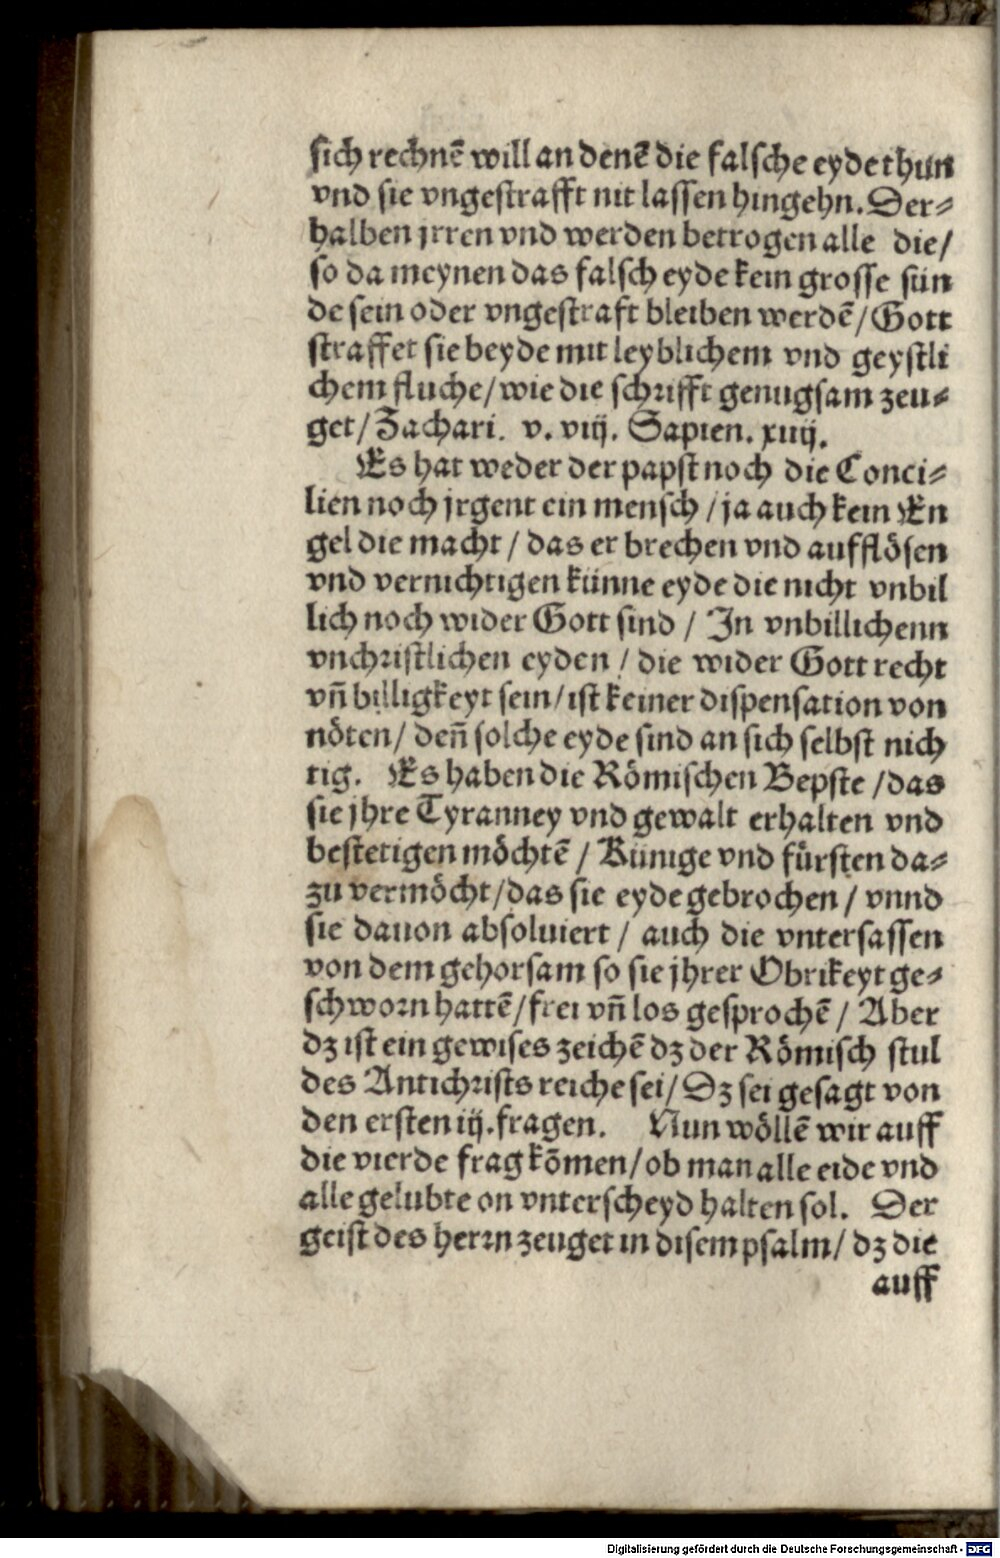 sich rechnē will an denē die falsche eyde thun
vnd sie vngestrafft nit lassen hingehn. Der-
halben jrren vnd werden betrogen alle die/
so da meynen das falsch eyde kein grosse sün
de sein oder vngestraft bleiben werdē/ Gott
straffet sie beyde mit leyblichem vnd geystli
chem fluche/ wie die schrifft genugsam zeu-
get/ Zachari. v. viij. Sapien. xiiij.
Es hat weder der papst noch die Conci-
lien noch jrgent ein mensch / ja auch kein En
gel die macht / das er brechen vnd aufflösen
vnd vernichtigen künne eyde die nicht vnbil
lich noch wider Gott sind / In vnbillichenn
vnchristlichen eyden / die wider Gott recht
vn̄ billigkeyt sein/ ist keiner dispensation von
nöten/ den̄ solche eyde sind an sich selbst nich
tig. Es haben die Römischen Bepste /das
sie jhre Tyranney vnd gewalt erhalten vnd
bestetigen möchtē / Künige vnd fürsten da-
zu vermöcht/das sie eyde gebrochen / vnnd
sie dauon absoluiert / auch die vntersassen
von dem gehorsam so sie jhrer Obrikeyt ge-
schworn hattē/frei vn̄ los gesprochē / Aber
dz ist ein gewises zeichē dz der Römisch stul
des Antichrists reiche sei/ Dz sei gesagt von
den ersten iij. fragen. Nun wöllē wir auff
die vierde frag kōmen/ ob man alle eide vnd
alle gelubte on vnterscheyd halten sol. Der
geist des herrn zeuget in disem psalm/ dz die
auff
Digitalisierung gefördert durch die Deutsche Forschungsgemeinschaft - DFG